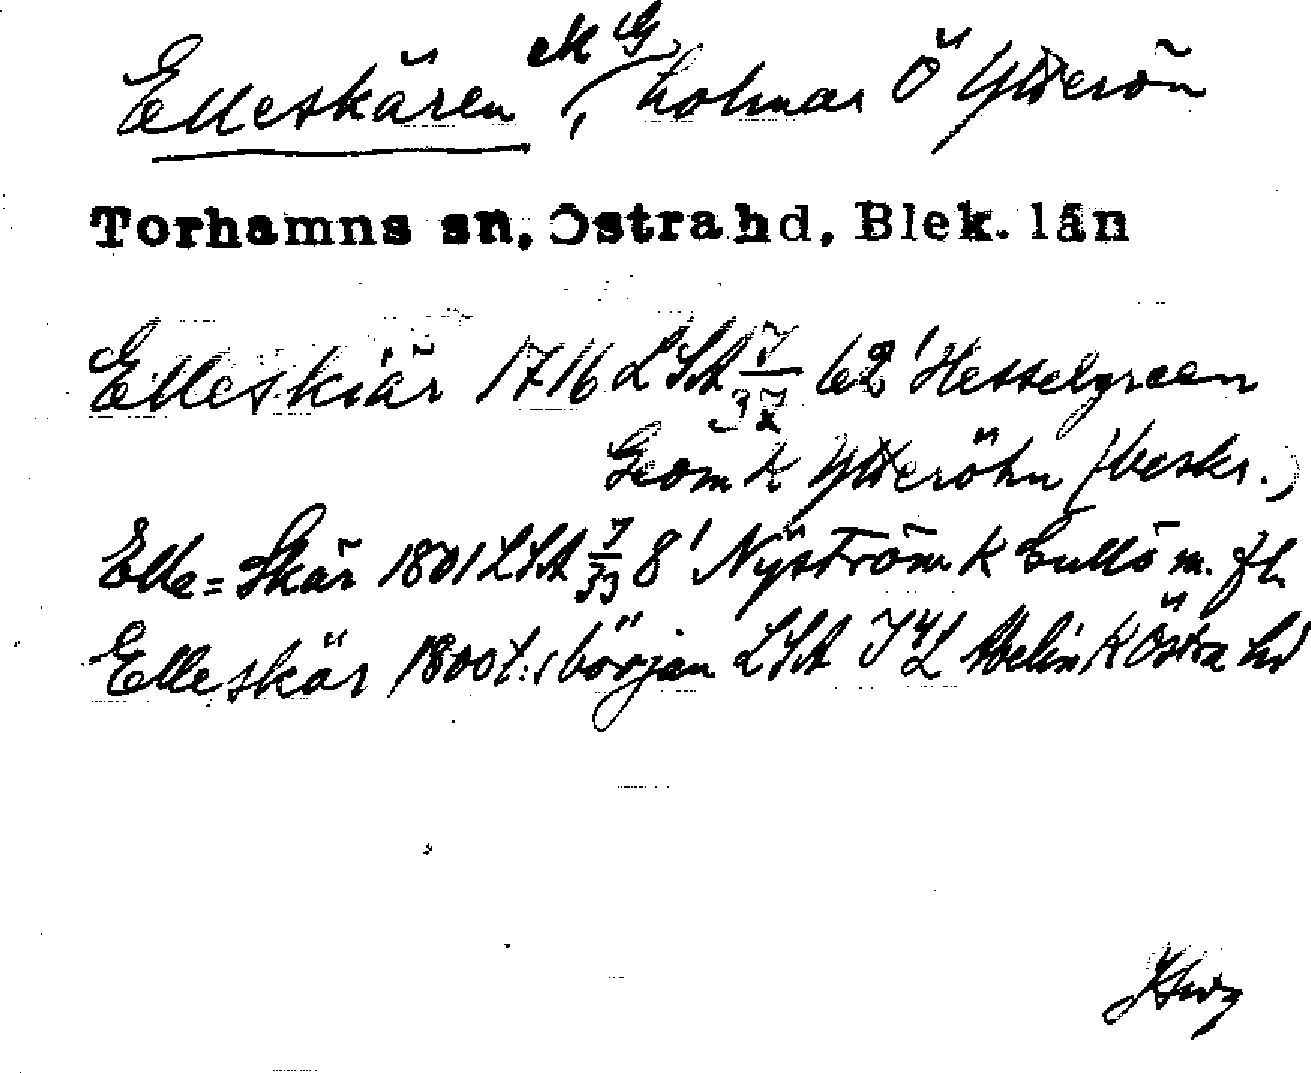 Elleskären MG, holmar Ö Ytterön
Torhamns sn, Östra hd, Blek. län
Elleskiär 1716 LSA 7/37 62' Hesselgreen
Geom K Ytteröhn (beskr.)
Elle=Skär 1801 LSA 7/33 8' Nyström K Cullö m. fl.
Elleskär 1800t:s början LSA Abelin K Östra hd